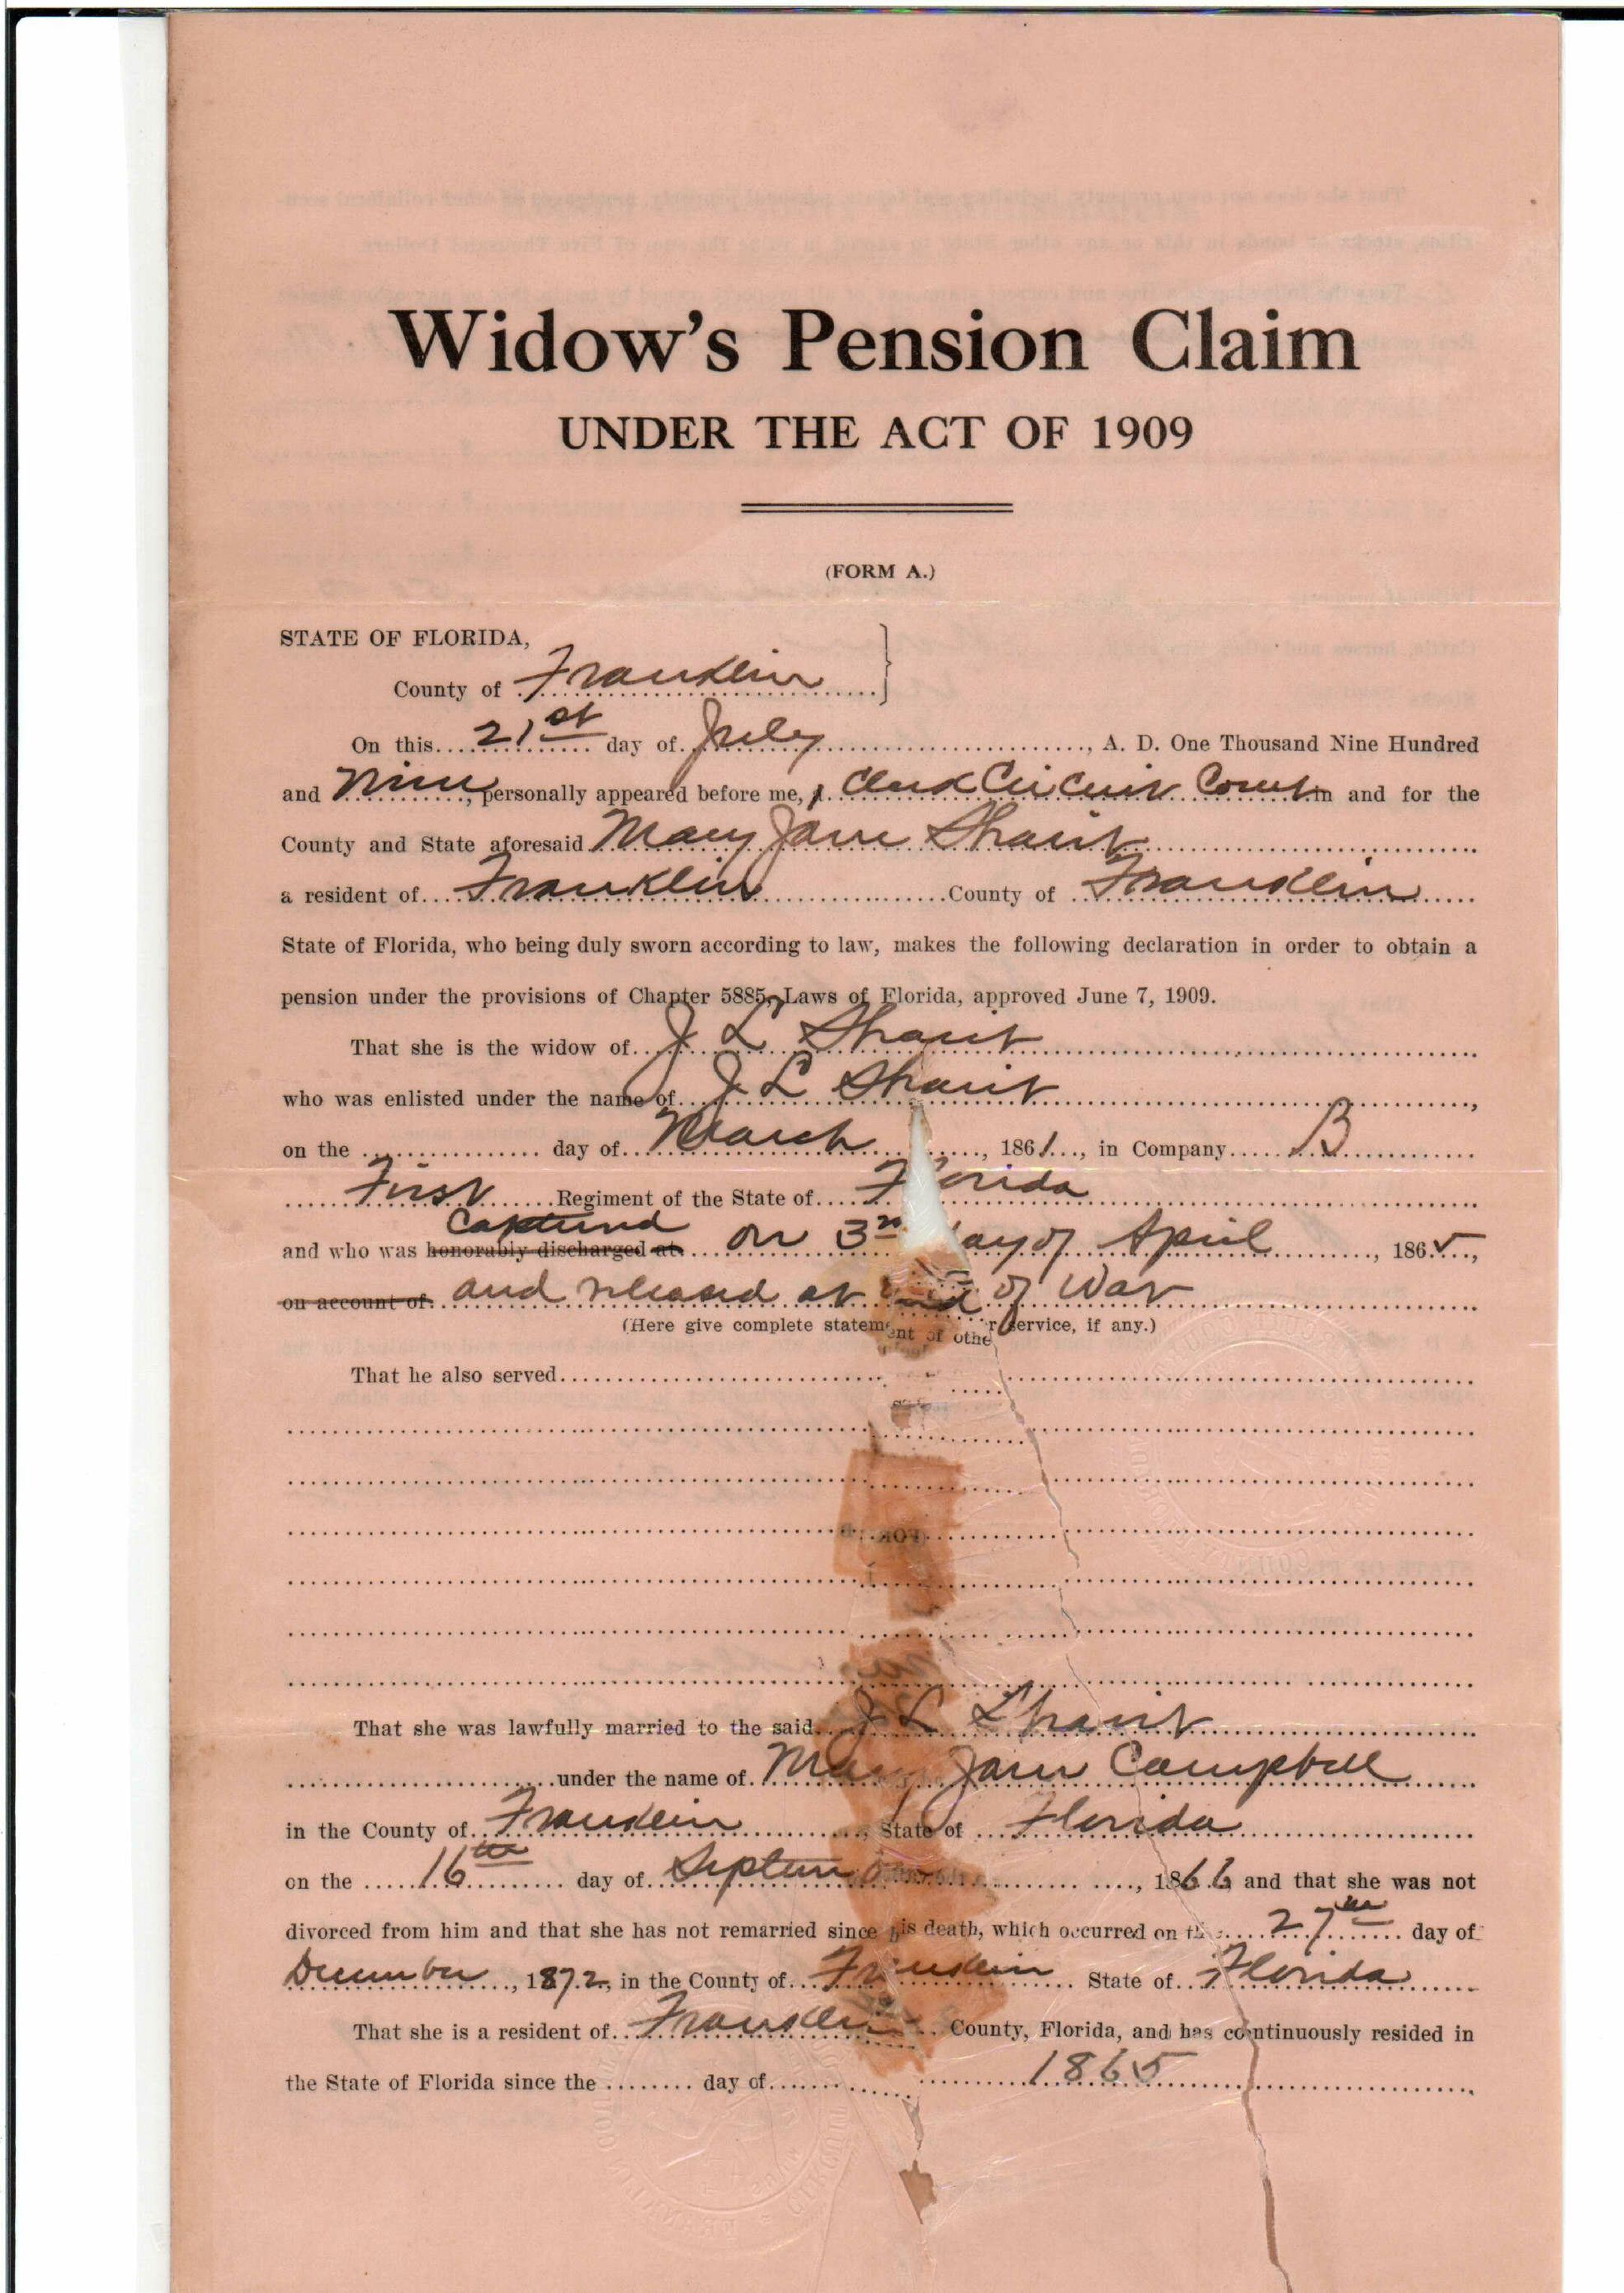 Widow's Pension Claim
UNDER THE ACT OF 1909
(FORM A.)
STATE OF FLORIDA,
County of Franklin
On this 21st day of July, A. D. One Thousand Nine Hundred
and Nine, personally appeared before me, Clerk Circuit Court in and for the
County and State aforesaid Mary Jane Sharit
a resident of Franklin County of Franklin
State of Florida, who being duly sworn according to law, makes the following declaration in order to obtain a
pension under the provisions of Chapter 5885, Laws of Florida, approved June 7, 1909.
That she is the widow of J L Sharit
who was enlisted under the name of J L Sharit,
on the day of March, 1861, in Company B
First Regiment of the State of Florida
Captured
and who was honorably discharged at on 3rd day of April, 1865,
on account of and released at end of War
(Here give complete statement of other service, if any.)
That he also served
That she was lawfully married to the said J L Sharit
under the name of Mary Jane Campbell
in the County of Franklin, State of Florida
on the 16th day of September, 1866 and that she was not
divorced from him and that she has not remarried since his death, which occurred on the 27th day of
December, 1872, in the County of Franklin State of Florida
That she is a resident of Franklin County, Florida, and has continuously resided in
the State of Florida since the day of 1865